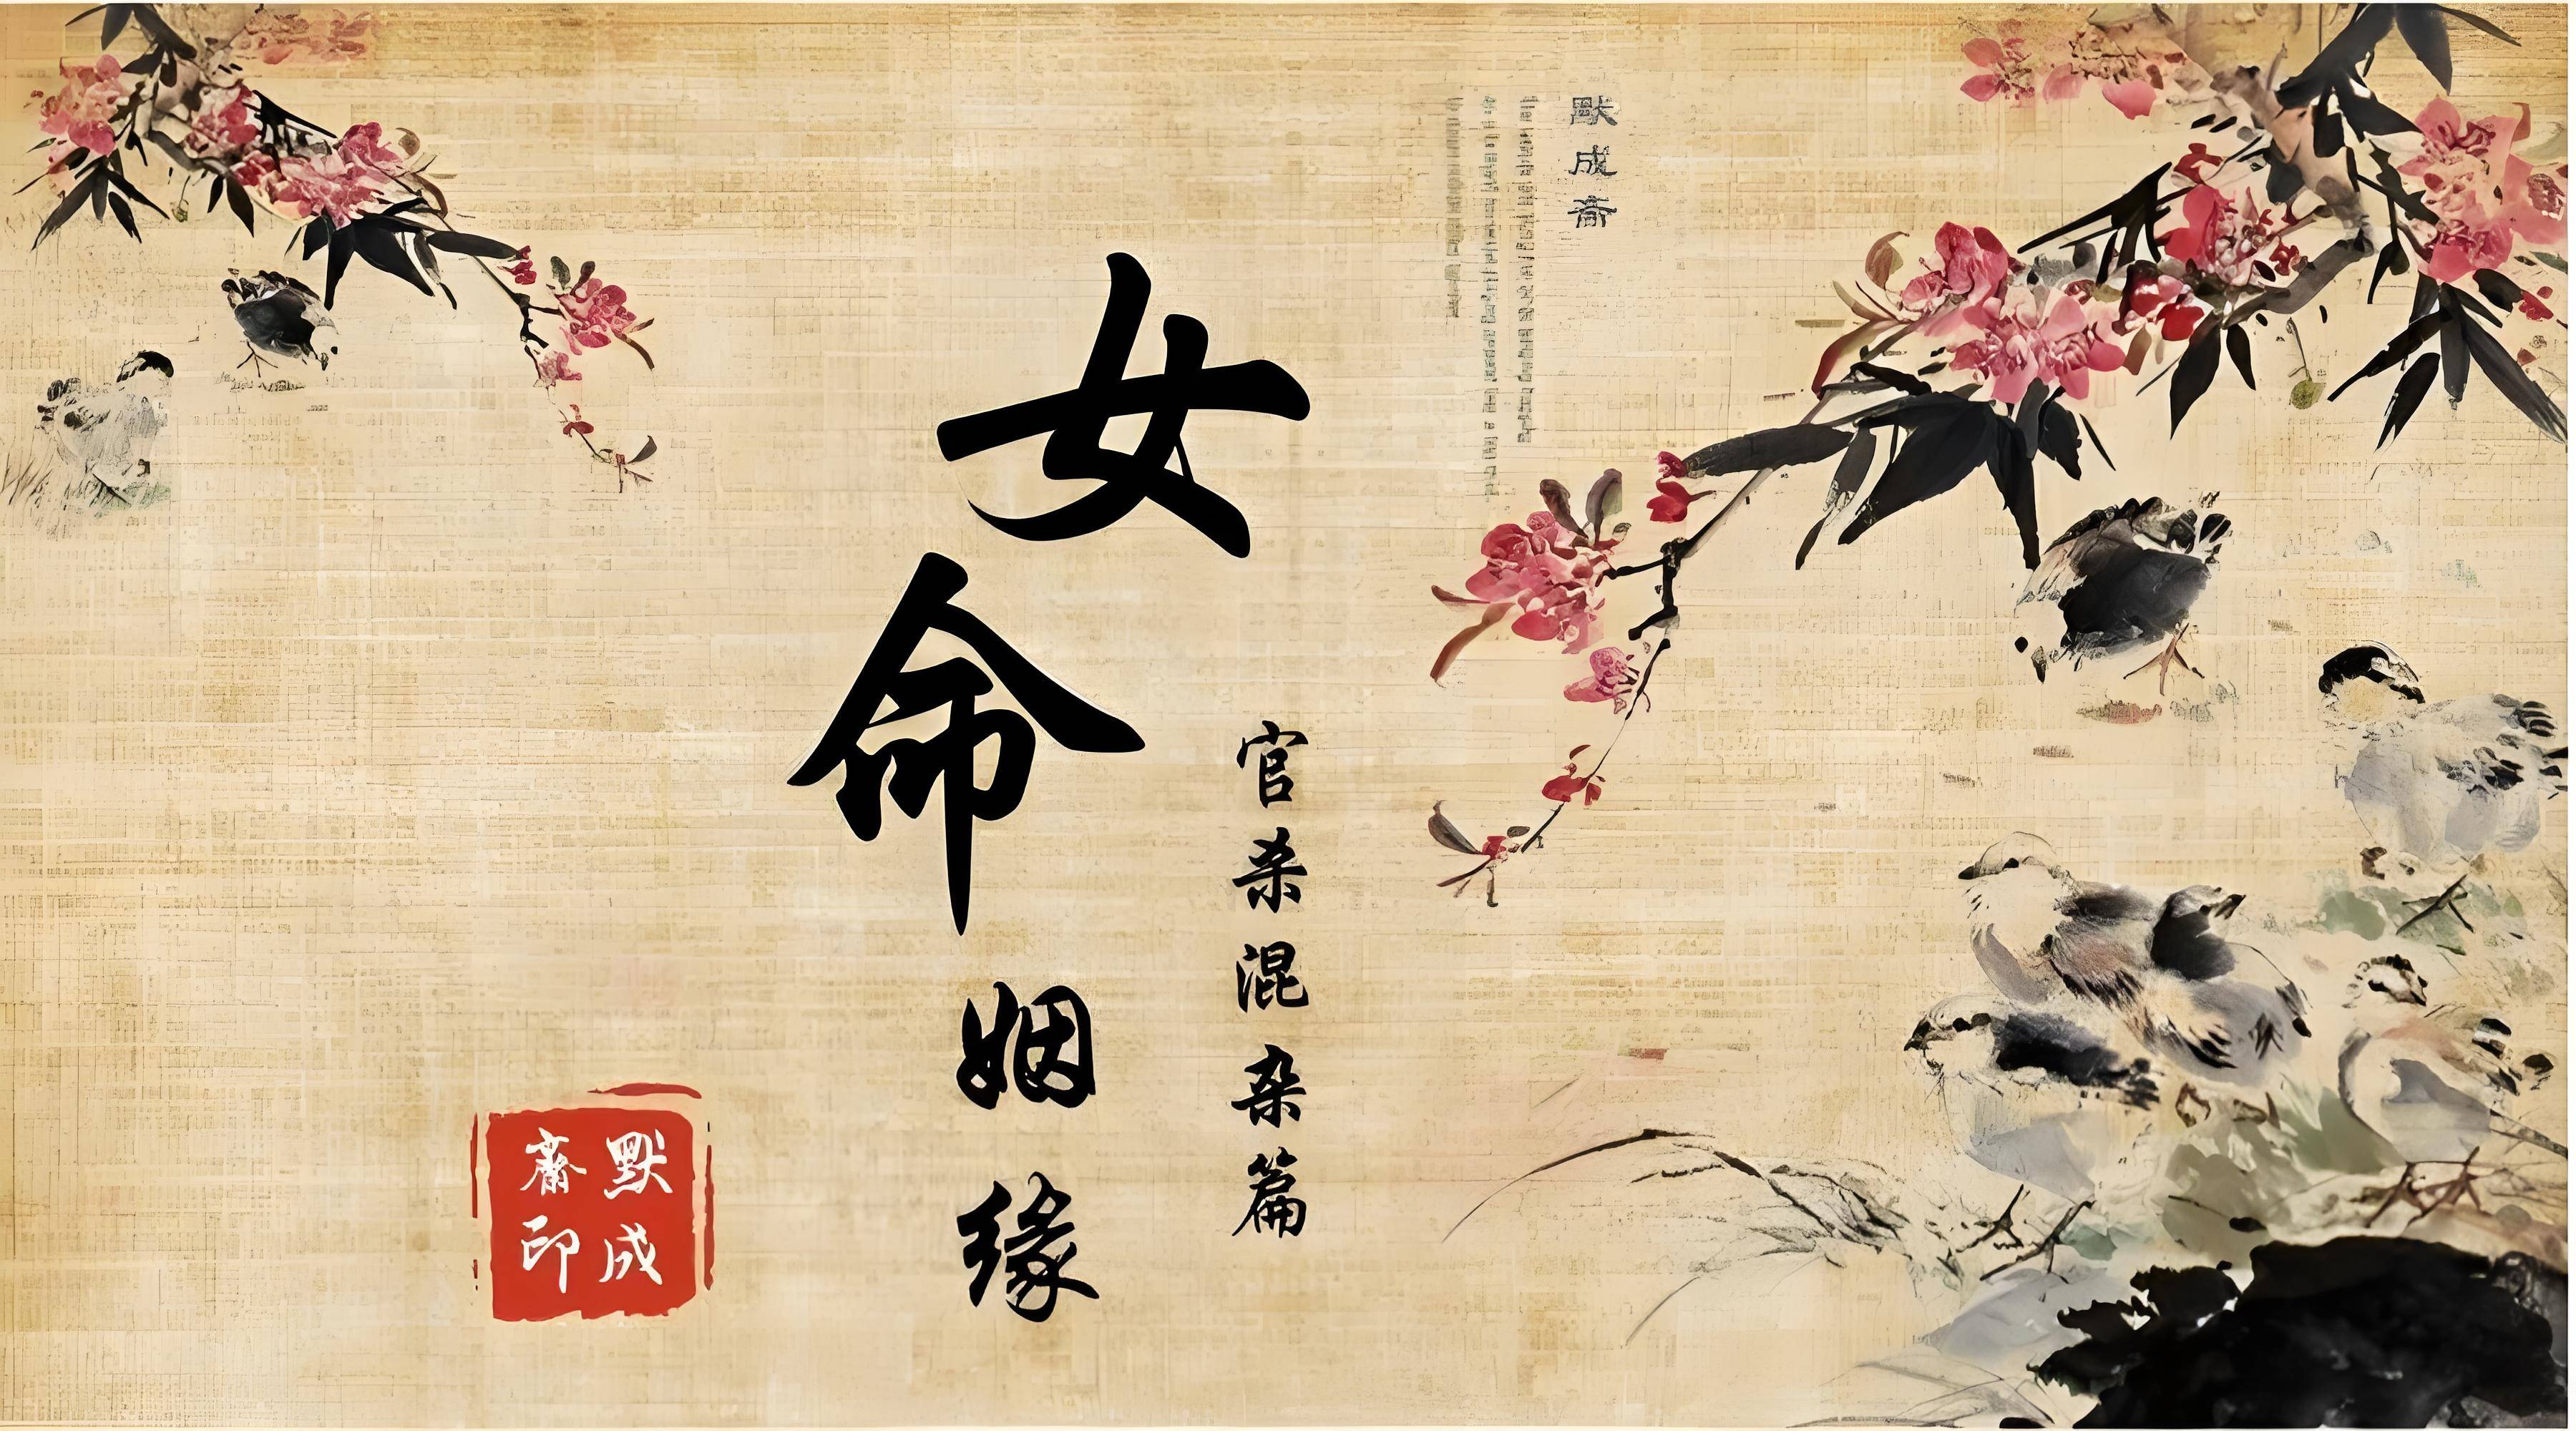 默成斋
女命
姻缘
官杀混杂篇
默成
斋印